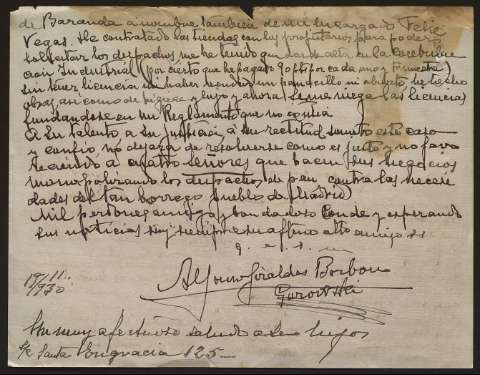 de Baranda a nombre tambien de mi encargado Felix
Vegas. He contratado las tiendas con los propietarios para poder
solicitar los despachos me he tenido que dar de alta en la Contribucion
Industrial (por cierto que he pagado por cada uno y trimestre)
sin tener licencia ni haber vendido un panecillo ni abierto, he hecho
obras, asi como de y lujo y ahora se me niega las licencias
fundandose en un Reglamento que no
A su talento a su justicia, a su rectitud someto este caso
y confio no dejara de resolverse como es justo y no favo
reciendo a cuatro señores que hacen sus negocios
monopolizando los despachos de pan contra las necesi
dades del tan borrego pueblo de Madrid
Mil perdones amigo y bondadoso Conde y esperando
sus noticias soy siempre su affmo alto amigo ss
q. e. s. m
Alfonso Giraldez Borbon
Gurowski
19/11/930
Un muy afectuoso saludo a sus hijos
s/c Santa Engracia 125